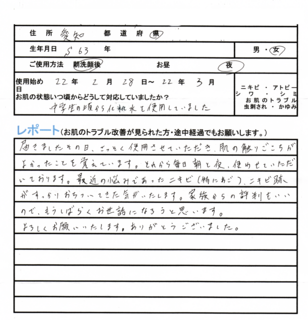 住 所 愛知 都 道 府 県
生年月日 S 63 年 男・女
ご使用方法 朝洗顔後 お昼 夜
使用始め 22年 2月 28日〜 22年 3月
日
ニキビ・アトピー
シワ・シミ
お肌のトラブル
虫刺され・かゆみ
お肌の状態いつ頃からどうして対応していましたか?
中学生の頃から化粧水を使用していました
レポート(お肌のトラブル改善が見られた方・途中経過でもお願いします。)
届きましたその日、さっそく使用させていただき、肌の触りごこちが
よかったことを覚えています。それから毎日朝と夜、使わせていただ
いております。最近の悩みであったニキビ(特にあご)、ニキビ跡
がすっかりおちついてきた気がいたします。家族からの評判もいい
ので、もうしばらくお世話になろうと思います。
よろしくお願いいたします。ありがとうございました。